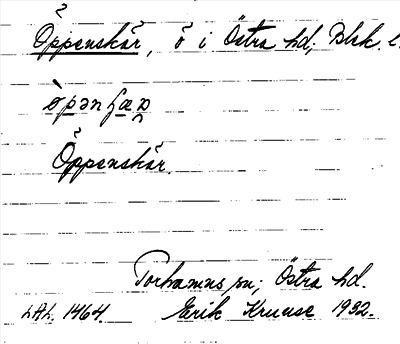 Öppenskär, ö i Östra hd; Blek. l.
Öppenskär.
Torhamns sn; Östra hd.
LAL. 1464. Erik Kruuse 1932.